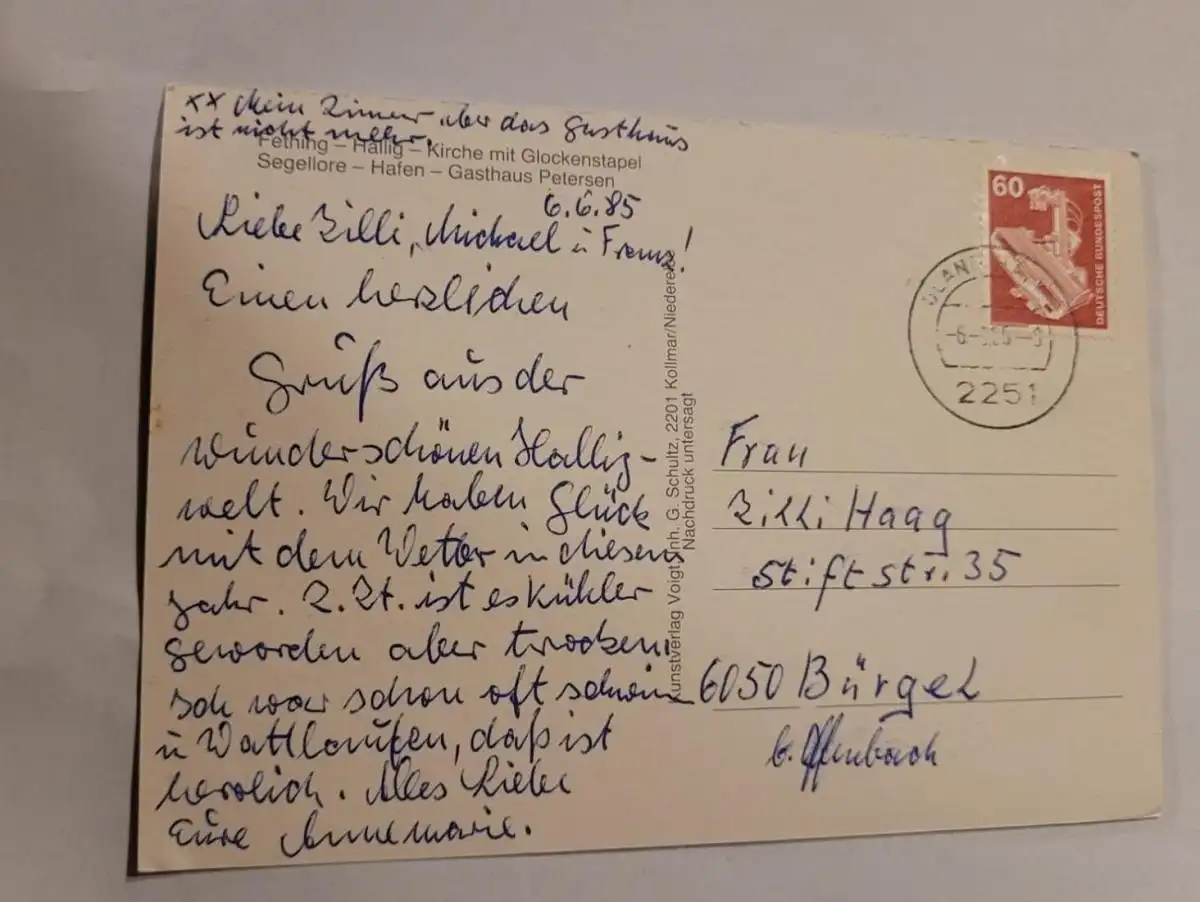 xx Mein Zimmer aber das Gasthaus
ist nicht mehr.
Fething – Hallig – Kirche mit Glockenstapel
Segellore – Hafen – Gasthaus Petersen
6.6.85
Liebe Zilli, Michael u Franz!
Einen herzlichen
Gruß aus der
wunderschönen Hallig-
welt. Wir haben Glück
mit dem Wetter in diesem
Jahr. Z. Zt. ist es kühler
geworden aber trocken.
Ich war schon oft schwim
u Wattlaufen, daß ist
herrlich. Alles Liebe
Eure Annemarie.
Kunstverlag Voigt, Inh. G. Schultz, 2201 Kollmar/Niederelbe
Nachdruck untersagt
60
DEUTSCHE BUNDESPOST
2251
Frau
Zilli Haag
Stiftstr. 35
6050 Bürgel
b. Offenbach